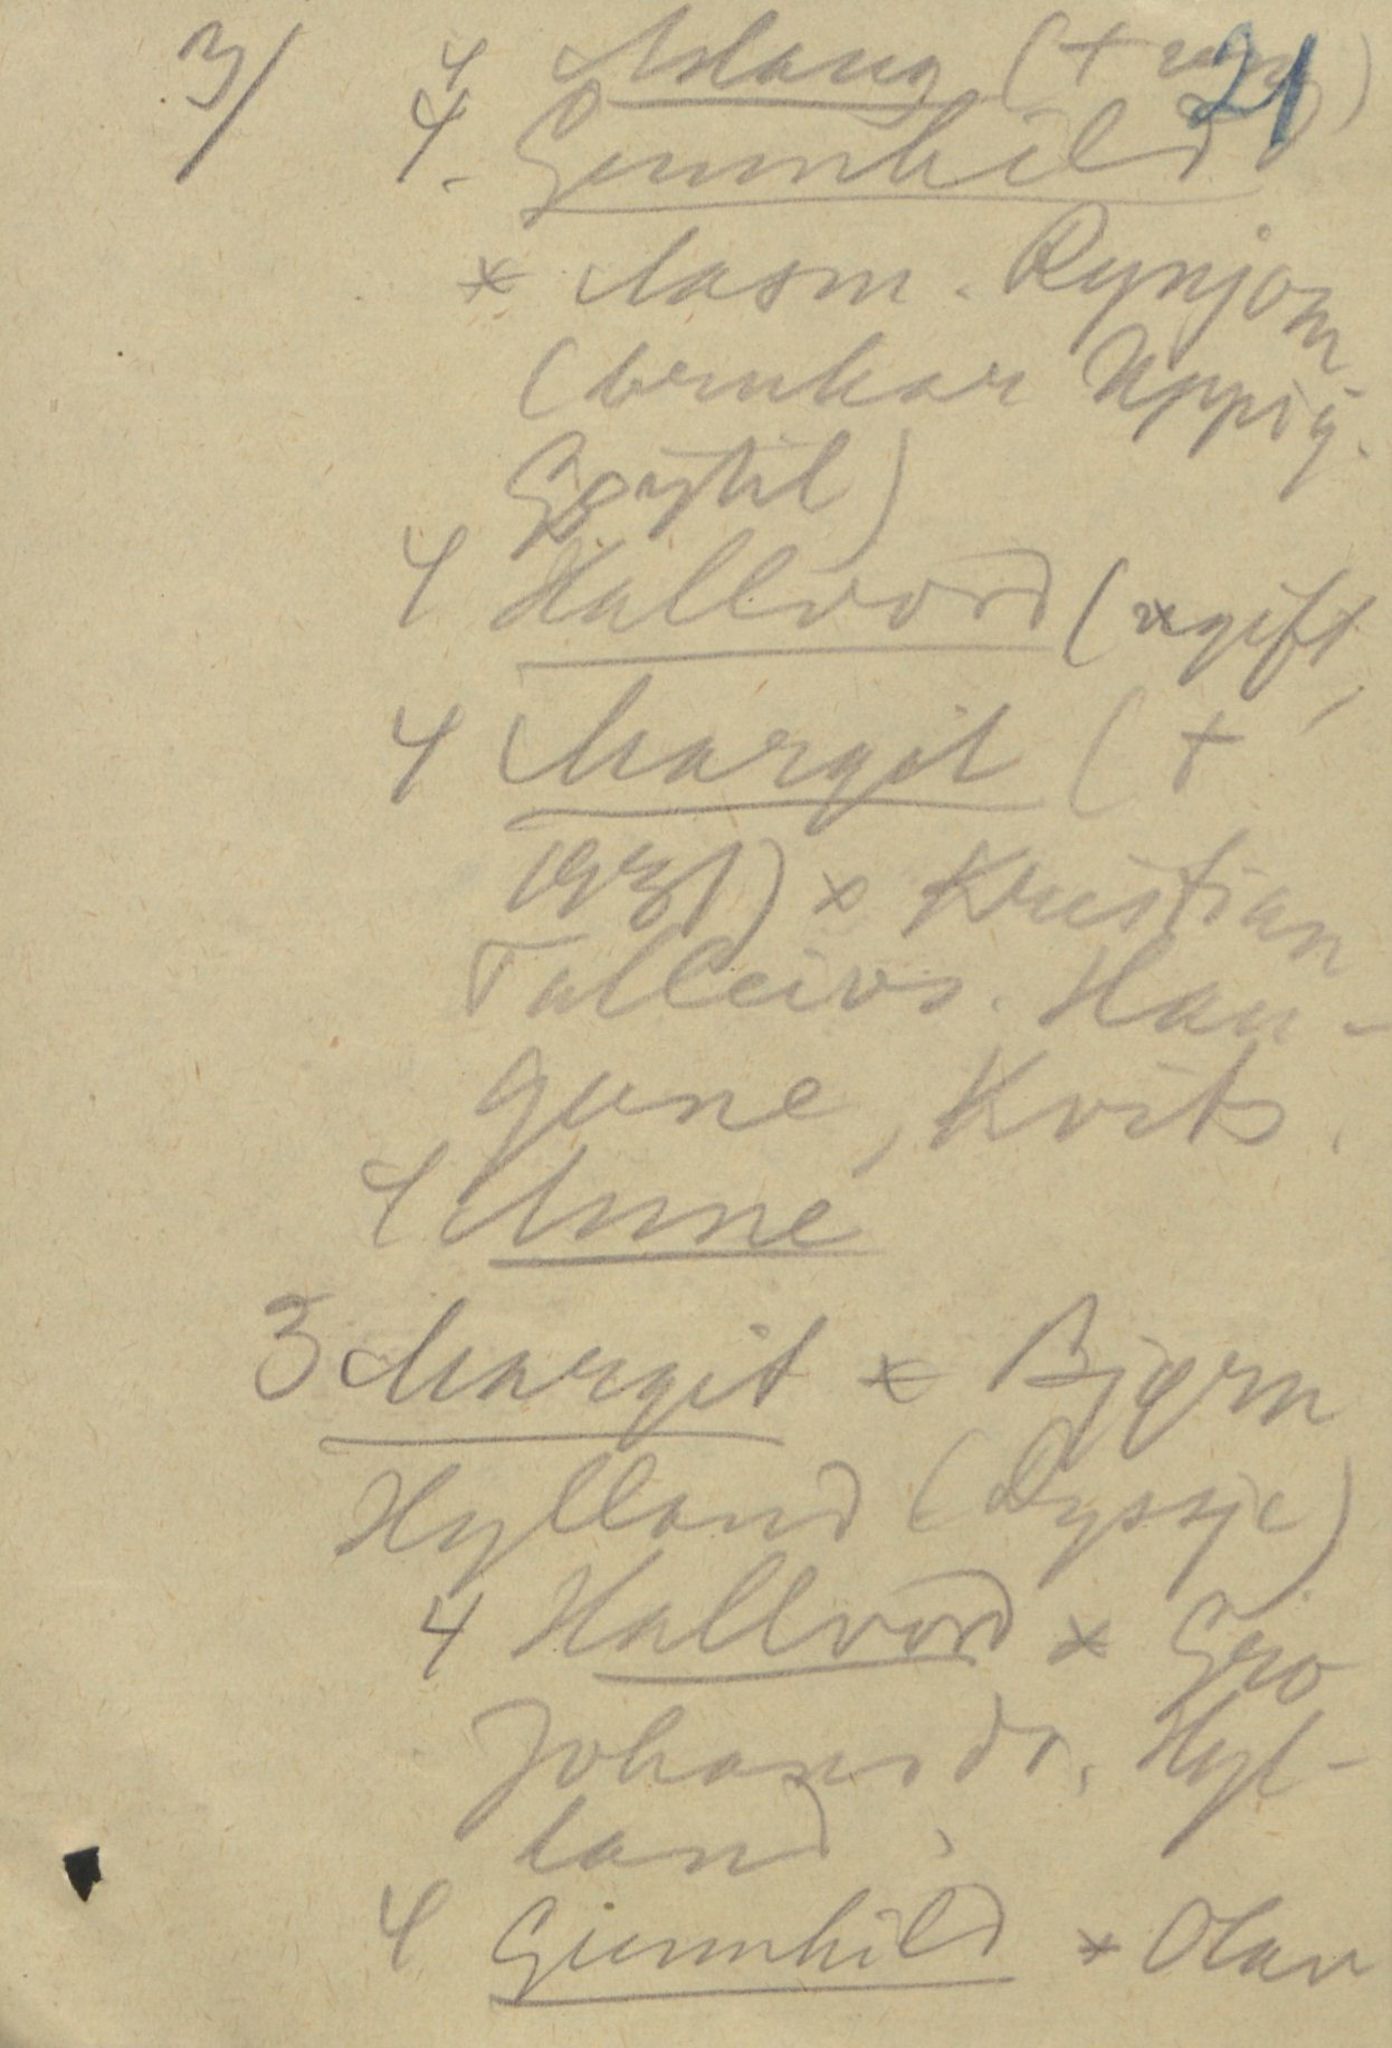 3/ 4 Aslaug (+ ung) 21
4. Gunnhild
x Aasm. Rynjom
(brukar Uppig.
Gjestil)
4 Hallvord (ugift,
4 Margit (+
1931) x Kristian
Talleivs. Hau-
gune, Kvits.
4 Anne
3 Margit x Bjørn
Hylland (Nyssje)
4 Hallvord x Gro
Johansdr. Hyl-
land,
4 Gunnhild x Olav